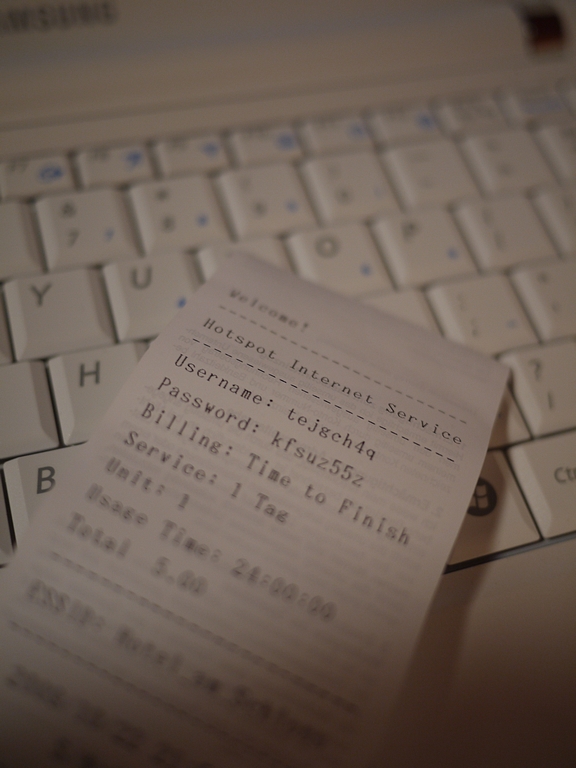 SAMSUNG
Y
U
O
P
H
B
Ctr
Welcome!
Hotspot Internet Service
Username: tejgch4q
Password: kfsuz55z
Billing: Time to Finish
Service: 1 Tag
Unit: 1
Usage Time: 24:00:00
Total 5.00
ESSID: